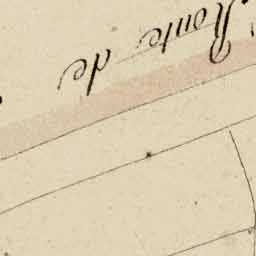 Route de